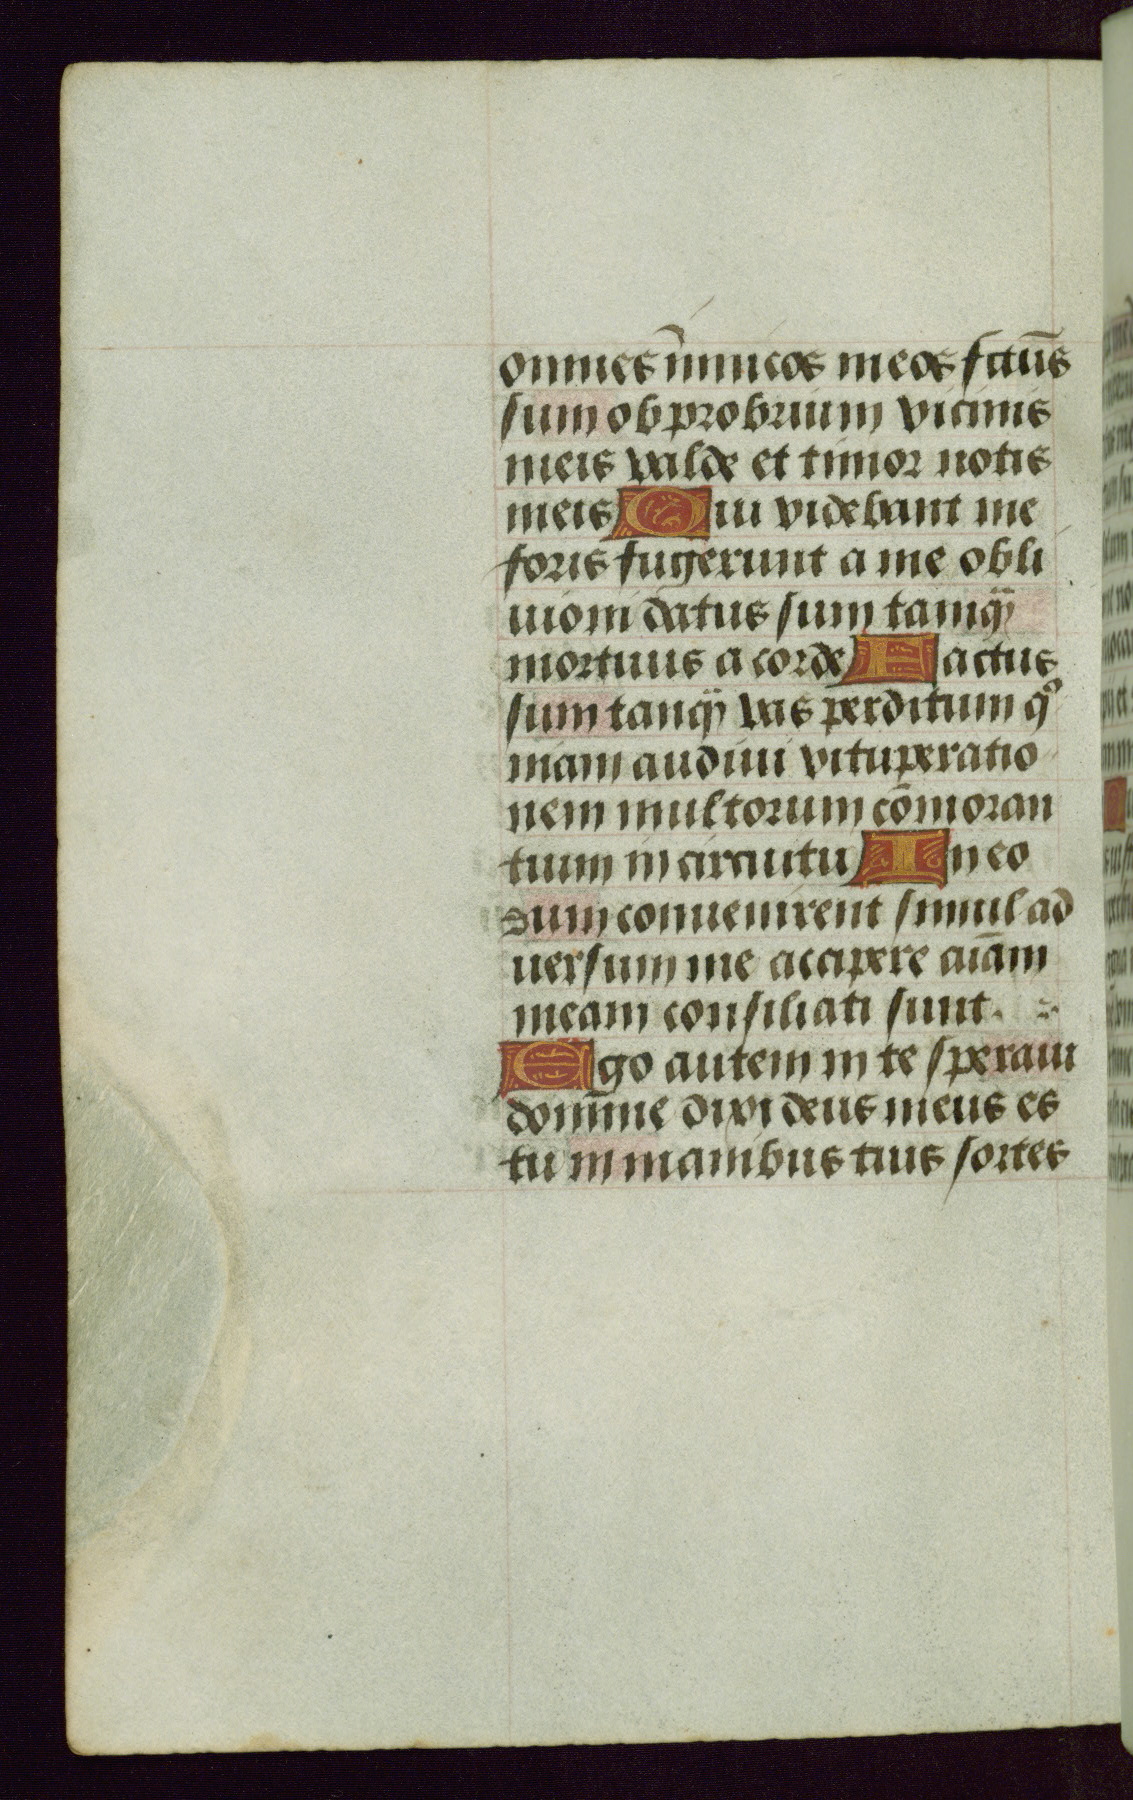 omnes inimicos meos fctūs
sum obprobrium vicinis
meis valde et timor notis
meis Qui videbant me
foris fugerunt a me obli
uioni datus sum tamq̃
mortuus a corde Factus
sum tanq̃ vas perditum qº
niam audiui vituperatio
nem multorum cōmoran
tium in circuitu In eo
dum conuenirent simul ad
uersum me accipere aiām
meam consiliati sunt.
Ego autem in te speraui
domīne dixi deus meus es
tu in manibus tuis sortes